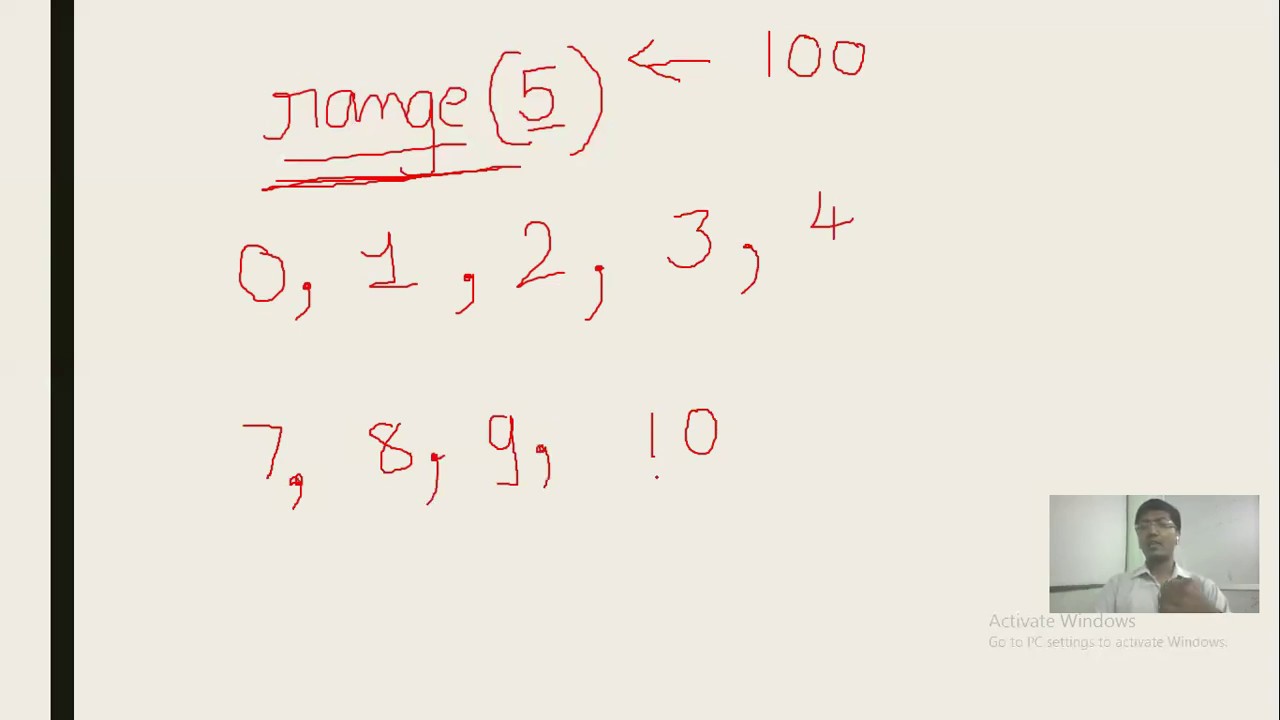 range (5) ← 100
0, 1, 2, 3, 4
7, 8, 9, 10
Activate Windows
Go to PC settings to activate Windows.